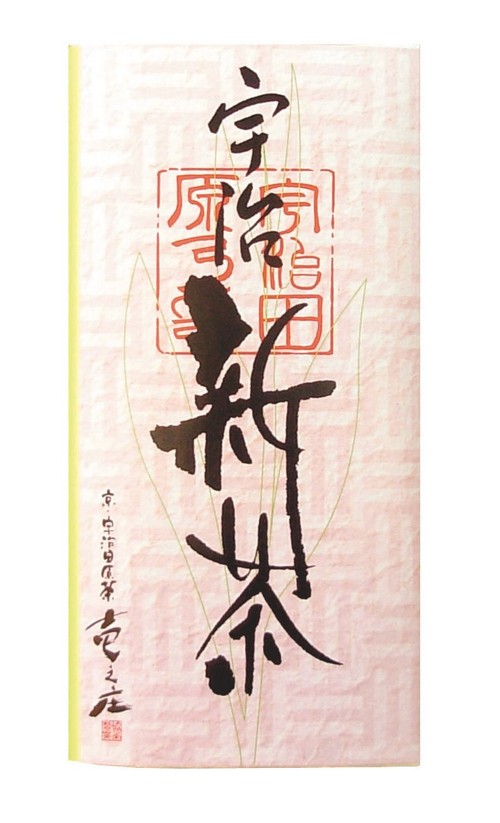 宇治新茶
宇治田
京・宇治田原茶
壱之庄